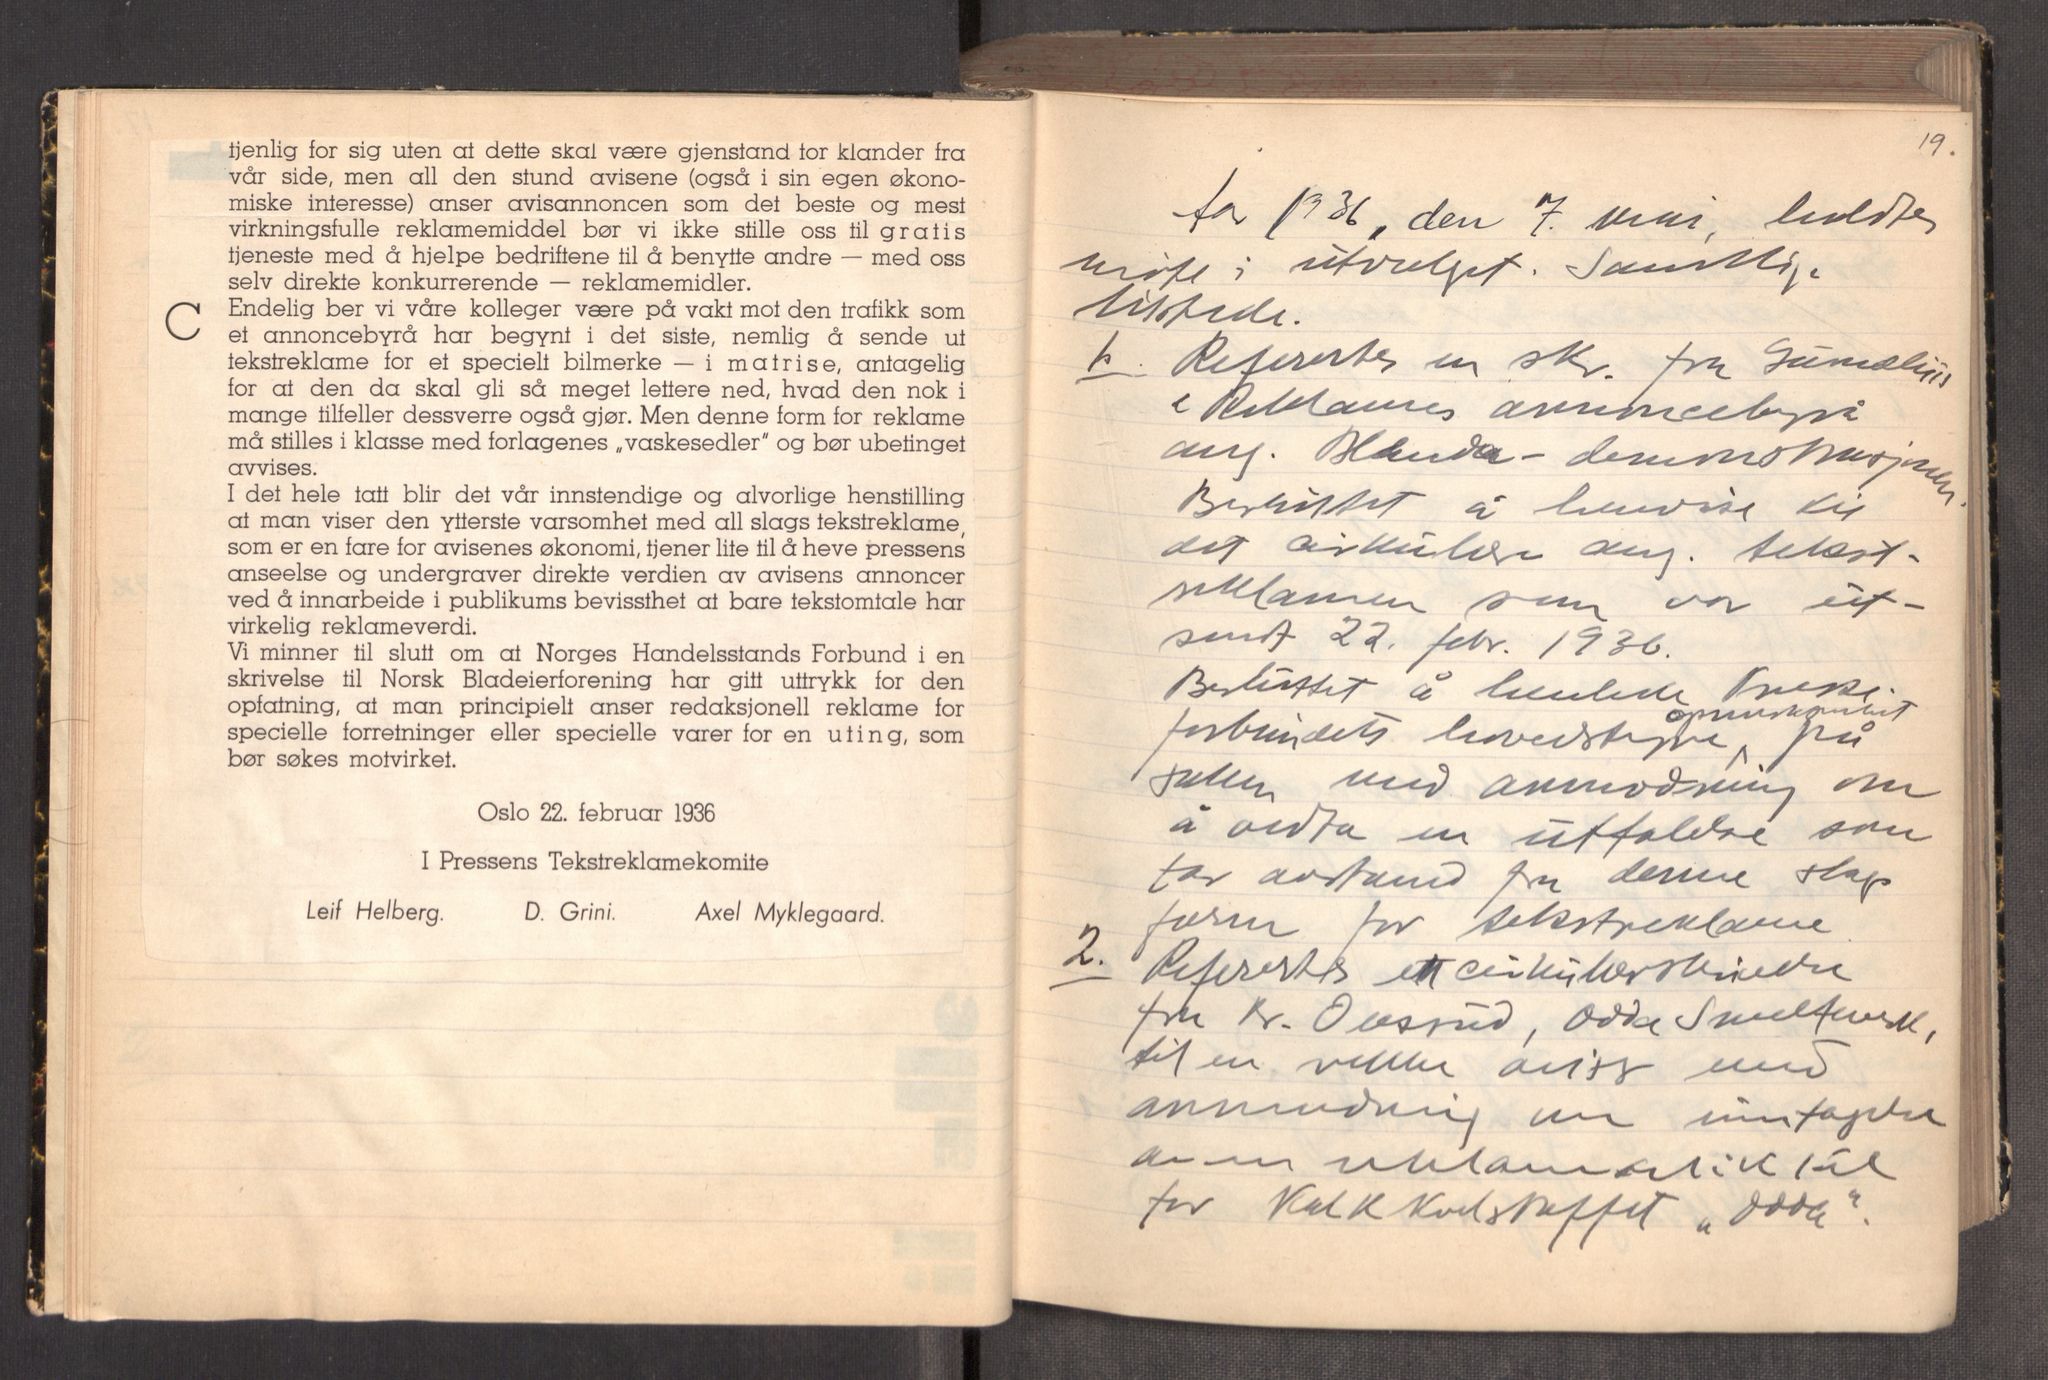 tjenlig for sig uten at dette skal være gjenstand for klander fra
vår side, men all den stund avisene (også i sin egen økono-
miske interesse) anser avisannoncen som det beste og mest
virkningsfulle reklamemiddel bør vi ikke stille oss til gratis
tjeneste med å hjelpe bedriftene til å benytte andre — med oss
selv direkte konkurrerende — reklamemidler.
C Endelig ber vi våre kolleger være på vakt mot den trafikk som
et annoncebyrå har begynt i det siste, nemlig å sende ut
tekstreklame for et specielt bilmerke — i matrise, antagelig
for at den da skal gli så meget lettere ned, hvad den nok i
mange tilfeller dessverre også gjør. Men denne form for reklame
må stilles i klasse med forlagenes „vaskesedler" og bør ubetinget
avvises.
I det hele tatt blir det vår innstendige og alvorlige henstilling
at man viser den ytterste varsomhet med all slags tekstreklame,
som er en fare for avisenes økonomi, tjener lite til å heve pressens
anseelse og undergraver direkte verdien av avisens annoncer
ved å innarbeide i publikums bevissthet at bare tekstomtale har
virkelig reklameverdi.
Vi minner til slutt om at Norges Handelsstands Forbund i en
skrivelse til Norsk Bladeierforening har gitt uttrykk for den
opfatning, at man principielt anser redaksjonell reklame for
specielle forretninger eller specielle varer for en uting, som
bør søkes motvirket.
Oslo 22. februar 1936
I Pressens Tekstreklamekomite
Leif Helberg. D. Grini. Axel Myklegaard.
19.
1936, den 7. mai, holdtes
møte i utvalget. Samtlige
tilstede.
1. Refertes en skr. fra Gumælius
Reklames annoncebyrå
ang. Blenda-demonstrasjonen.
Besluttet å henvise til
det cirkulære ang. tekst-
reklamen som var ut-
sendt 22. febr. 1936.
Besluttet å henlede Presse-
forbundets hovedstyre opmerksomhet på
saken med anmodning om
å vedta en uttalelse som
tar avstand fra denne slags
form for tekstreklame
2. Refertes et cirkulærskrivelse
fra Kr. , Odda Smelteverk,
til en rekke aviser med
anmodning om inntagelse
av en reklameartikkel
for Kalkkvelstoffet „Odda".